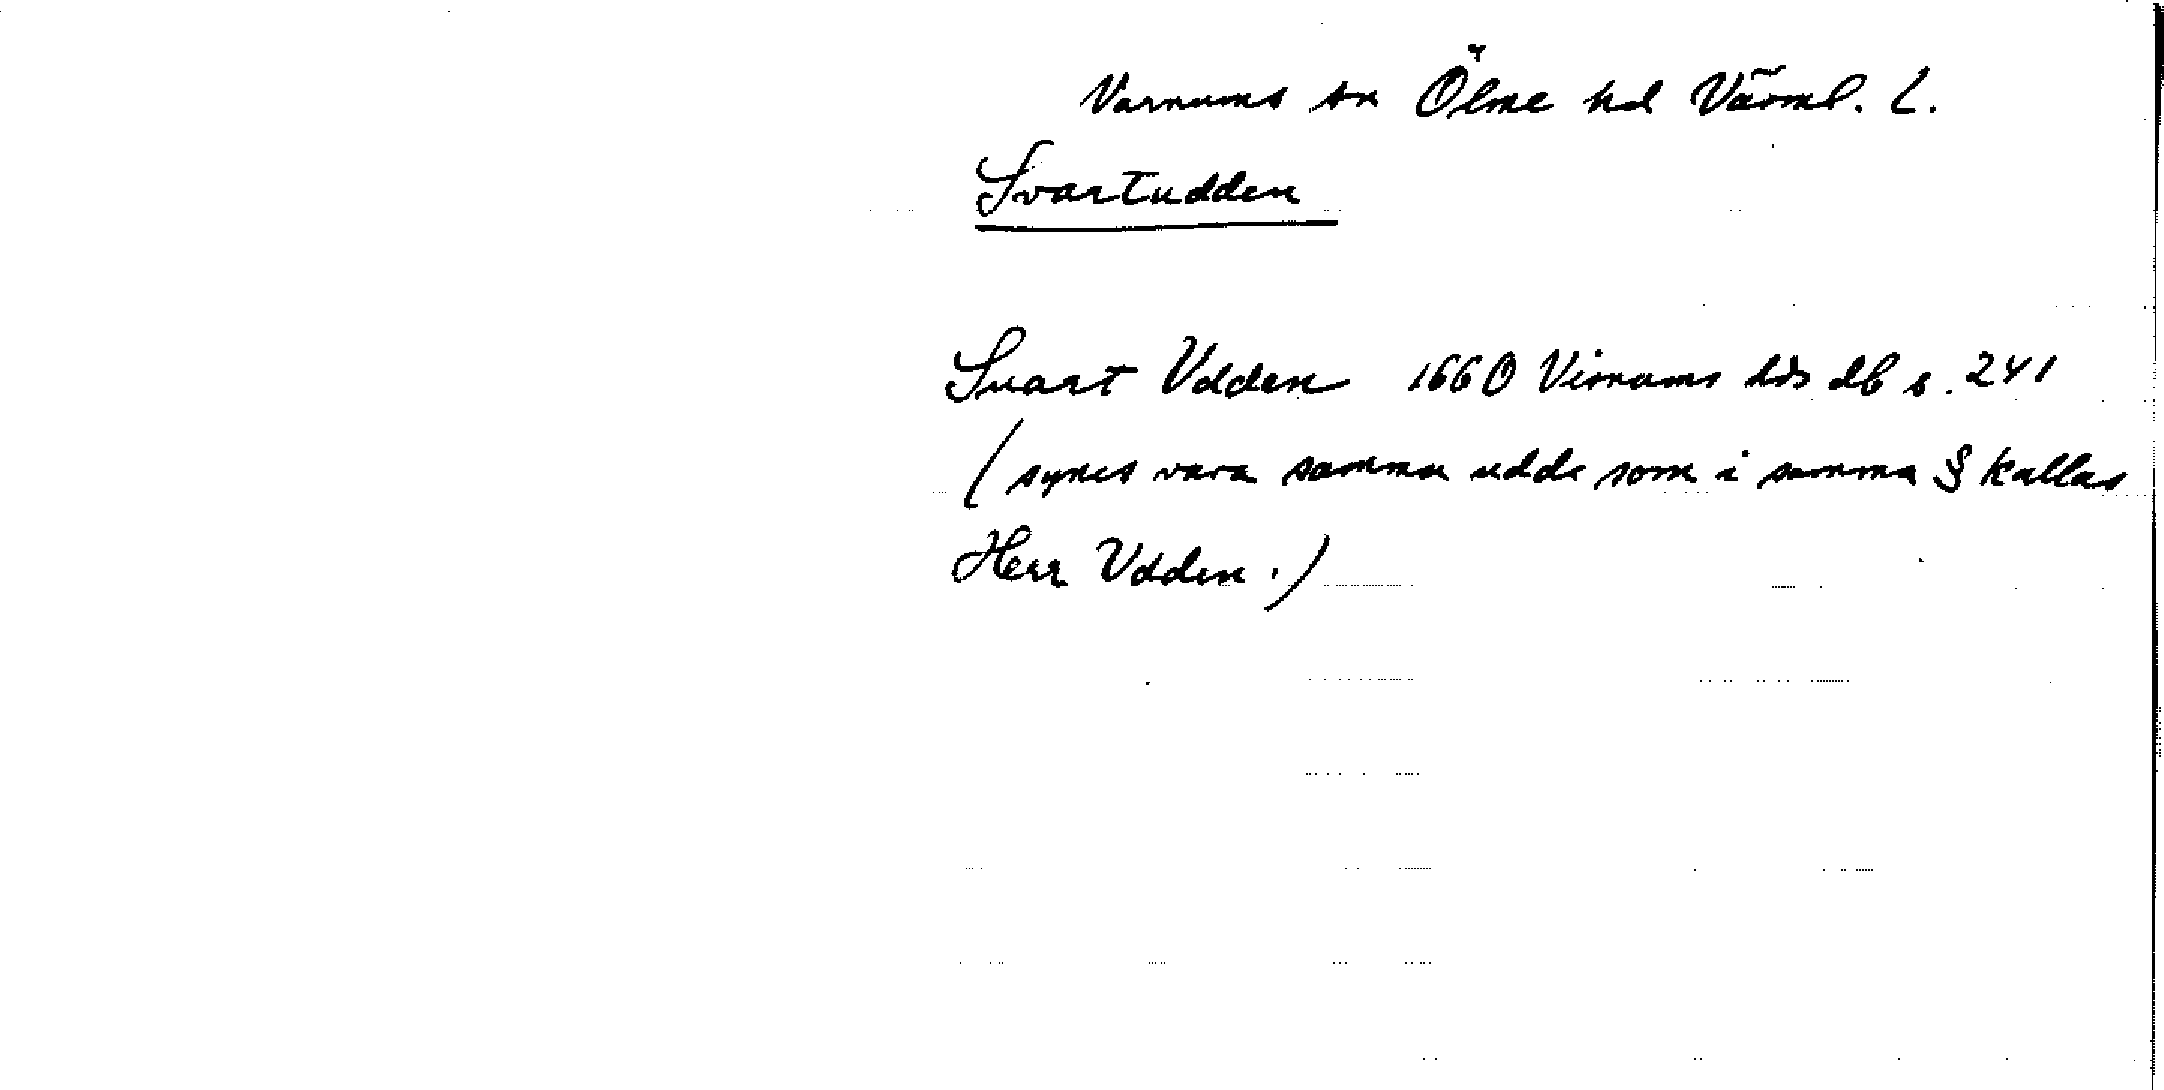 Varnums sn Ölme hd Värml. L.
Svartudden
Suart Udden 1660 Visnums hds db s. 241
(synes vara samma udde som i samma § kallas
Herr Udden.)